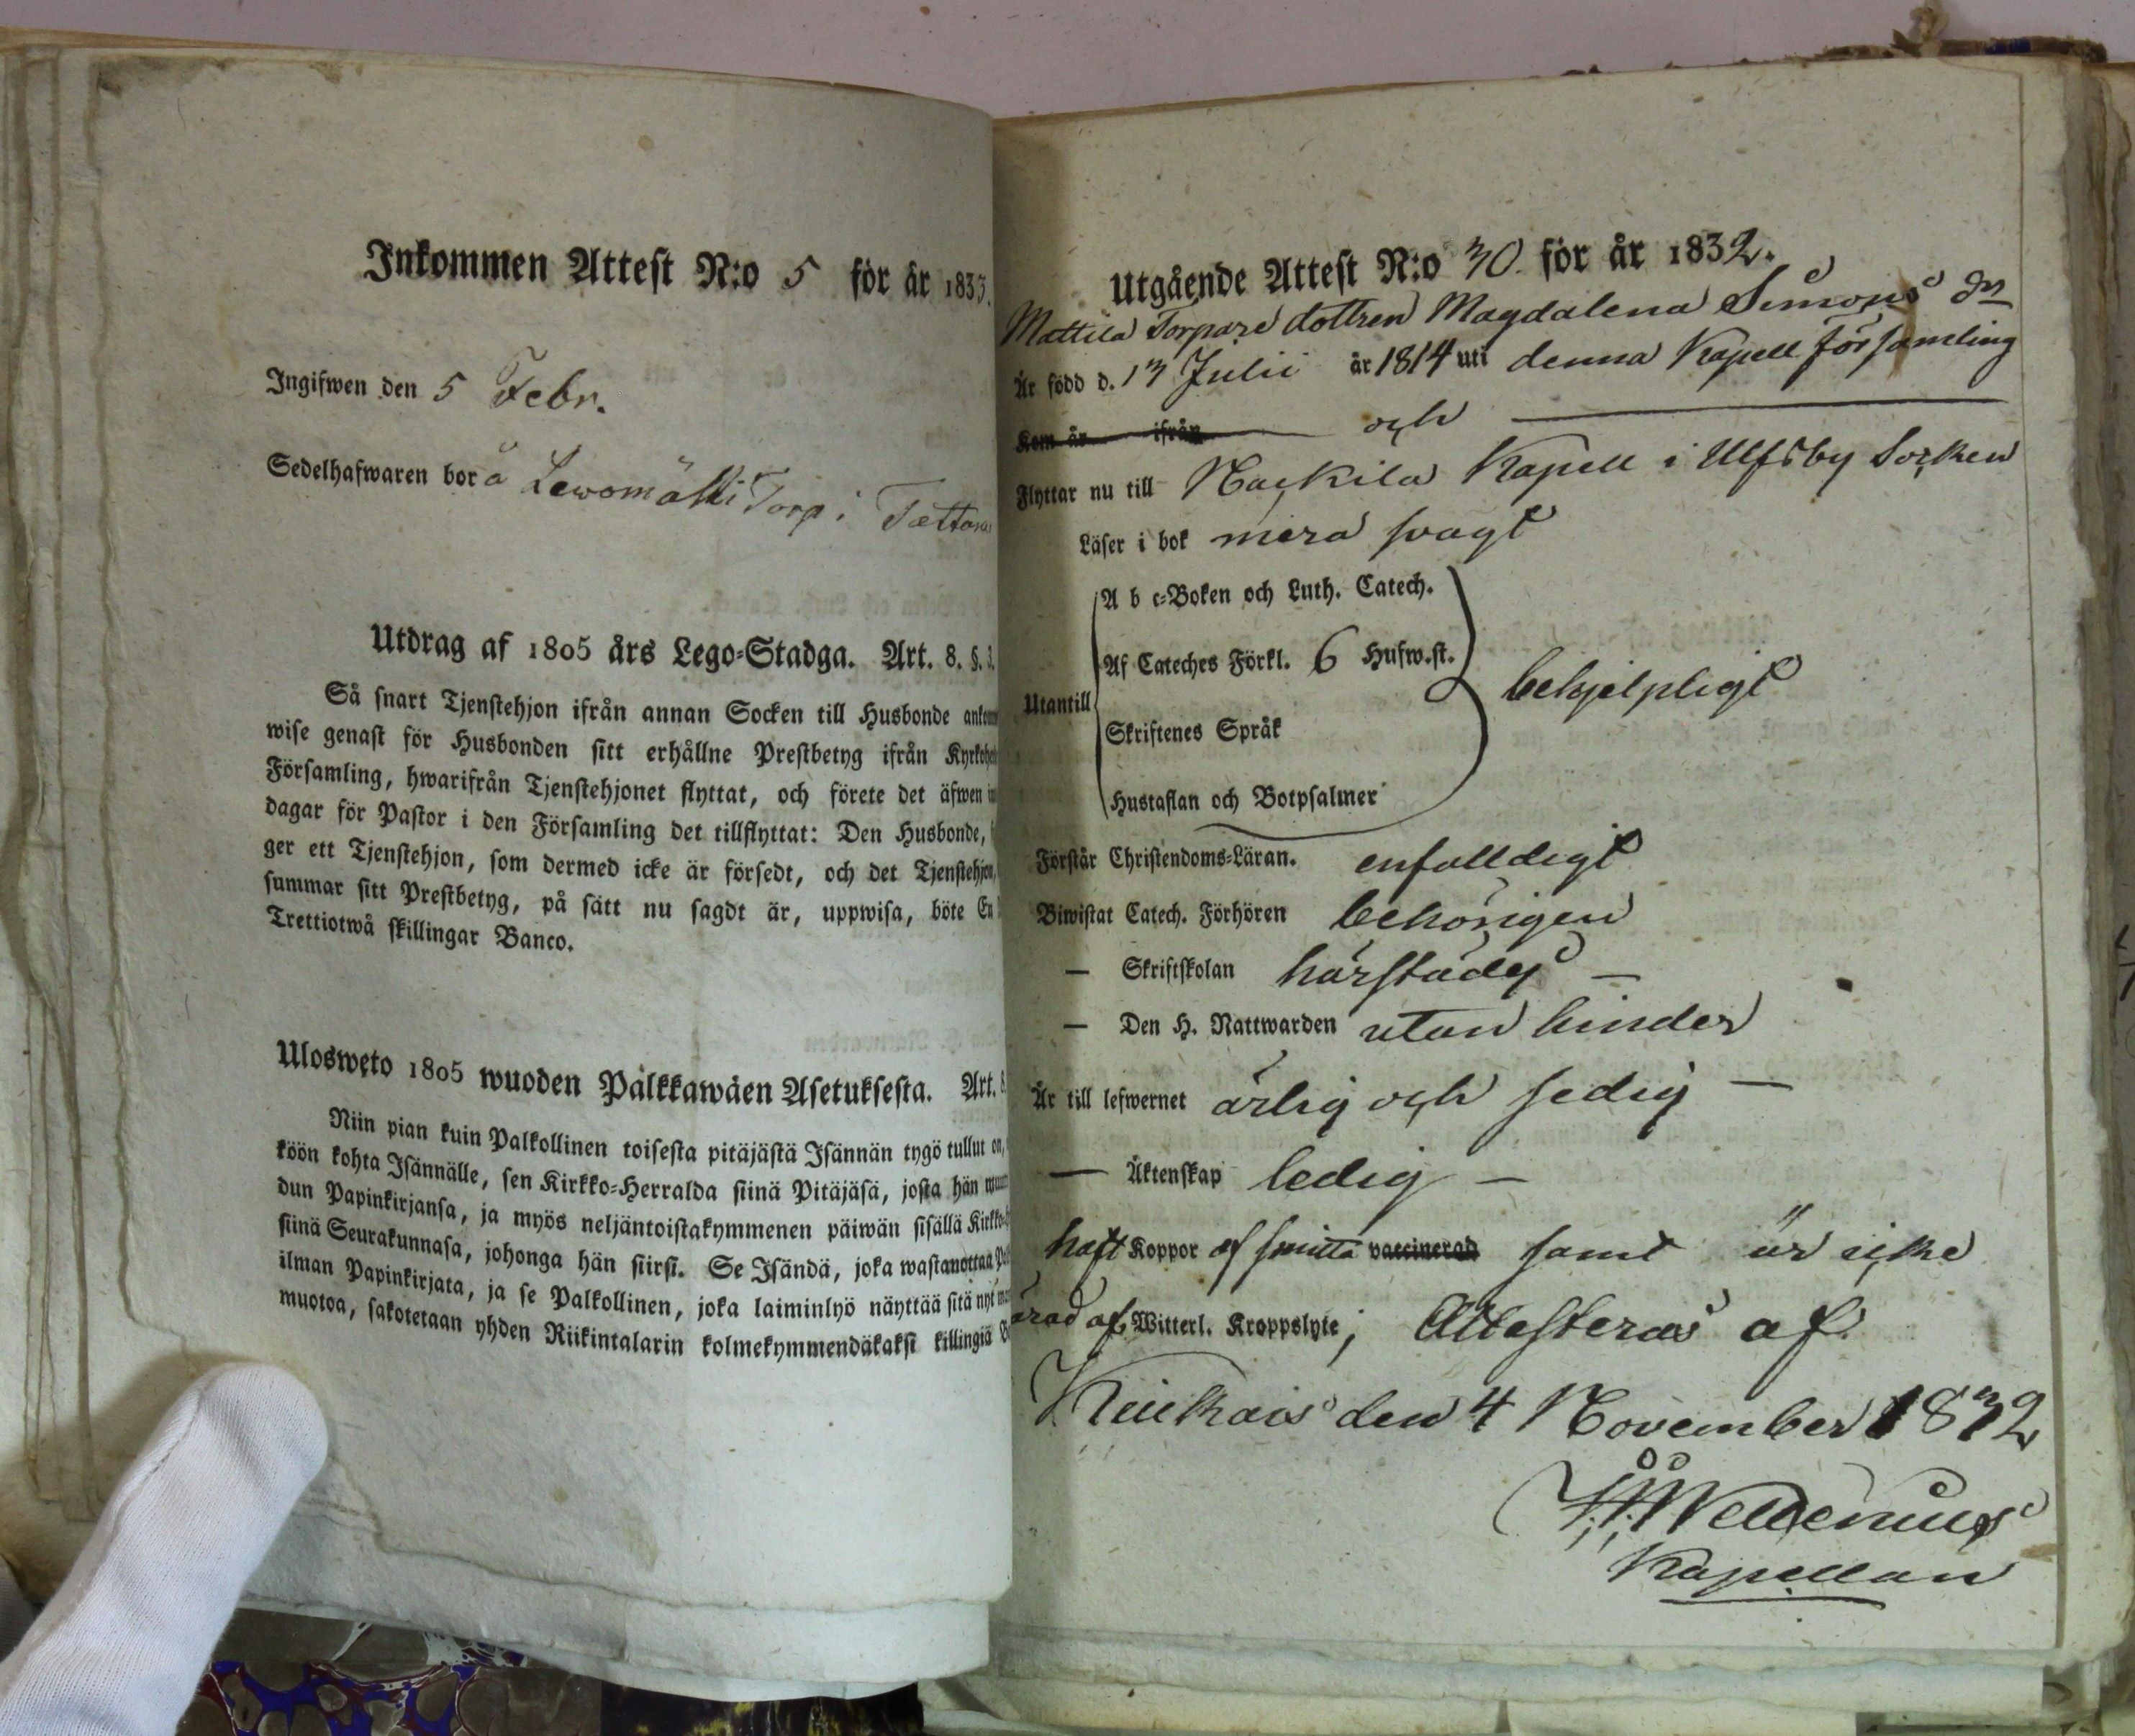 Inkommen Attest N:o 5 för år 1833.
Ingifwen den 5 Febr.
Sedelhafwaren bor å Lewomäki Torp i
Utdrag af 1805 års Lego-Stadga. Art. 8. §. 3.
Så snart Tjenstehjon ifrån annan Socken till Husbonde
wise genast för Husbonden sitt erhållne Prestbetyg ifrån
Församling, hwarifrån Tjenstehjonet flyttat, och förete det äfwen
dagar för Pastor i den Församling det tillflyttat: Den Husbonde,
ger ett Tjenstehjon, som dermed icke är försedt, och det
summar sitt Prestbetyg, på sätt nu sagdt är, uppwisa, böte En
Trettiotwå skillingar Banco.
Ulosweto 1805 wuoden Palkkawäen Asetuksesta. Art. 8
Niin pian kuin Palkollinen toisesta pitäjästä Isännän tygö tullut on,
köön kohta Isännälle, sen Kirkko-Herralda siinä Pitäjäsä, josta hän
dun Papinkirjansa, ja myös neljäntoistakymmenen päiwän sisällä
siinä Seurakunnasa, johonga hän siirsi. Se Isändä, joka wastanottaa
ilman Papinkirjata, ja se Palkollinen, joka laiminlyö näyttää sitä nyt
muotoa, sakotetaan yhden Riikintalarin kolmekymmendäkaksi killingiä
Utgående Attest N:o 30. för år 1832.
Mattila Torpare dottren Magdalena Simons dr
Är född d. 13 Julii år 1814 uti denna Kapell församling
Kom år ifrån och
Flyttar nu till Nackila Kapell i Ulfsby Socken
Läser i bok mera svagt
A b c-Boken och Luth. Catech.
Af Cateches Förkl. 6 Hufw.st.
Utantill behjelpligt
Skriftenes Språk
Hustaflan och Botpsalmer
Förstår Christendoms-Läran. enfalldigt
Biwistat Catech. Förhören behörigen
— Skriftskolan härstädes —
— Den H. Nattwarden utan hinder
Är till lefwernet ärlig och sedig —
— Äktenskap ledig —
haft Koppor af smitta vaccinerad samt är icke
ärad af Witterl. Kroppslyte; Attesteras af.
Kiukais den 4 November 1832
Kapellan